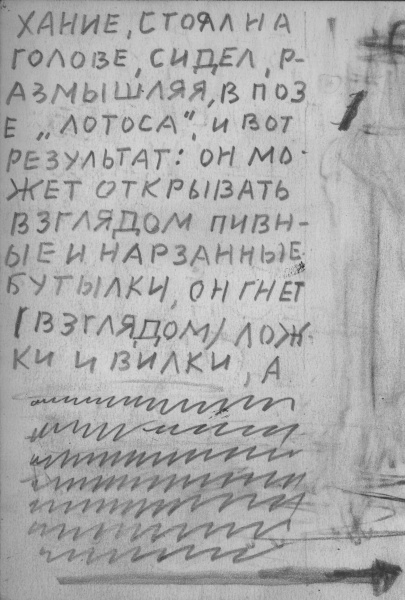 ХАНИЕ, СТОЯЛ НА
ГОЛОВЕ, СИДЕЛ, Р-
АЗМЫШЛЯЯ, В ПОЗ
Е „ЛОТОСА", И ВОТ
РЕЗУЛЬТАТ: ОН МО-
ЖЕТ ОТКРЫВАТЬ
ВЗГЛЯДОМ ПИВН-
ЫЕ И НАРЗАННЫЕ
БУТЫЛКИ, ОН ГНЕТ
(ВЗГЛЯДОМ) ЛОЖ-
КИ И ВИЛКИ, А